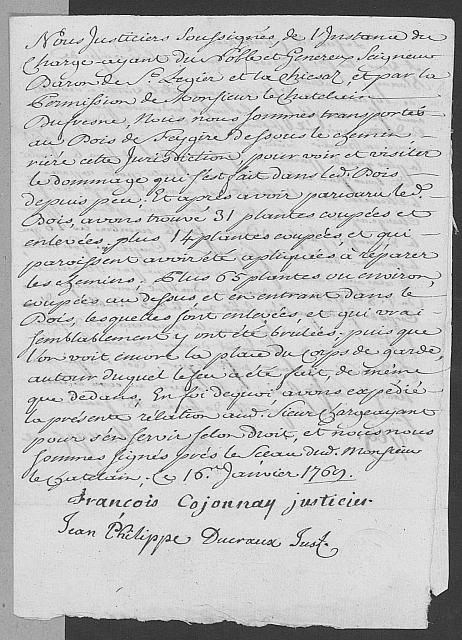 Nous Justiciers Soussignés, de l'Instance du
Charge-ayant du Noble et Genereux Seigneur
Baron de St. Légier et la Chiesaz, et par la
Permission de Monsieur le Chatelain
Dufresne, Nous nous sommes transportés
au Bois de Feygire dessous le chemin
rière cette Jurisdiction, pour voir et visiter
le dommage qui s'est fait dans led. Bois
depuis peu, Et après avoir parcouru le d.
Bois, avons trouvé 31 plantes coupées et
enlevées, plus 14 plantes coupées, et qui
paroissent avoir été apliquées à réparer
les chemins. Plus 65 plantes ou environ
coupées au dessus, et en entrant dans le
Bois, lesquelles sont enlevées, et qui vrai-
semblablement y ont été brulées, puis que
l'on voit encore la place du Corps de garde,
autour duquel le feu a été fait, de même
que dedans; En foi dequoi avons expédié
la présente rélation aud. Sieur Chargeayant
pour s'en servir selon Droit, et nous nous
sommes signés près le Sceau dud. Monsieur
le Chatelain, Ce 16. Janvier 1769.
François Cojonnay justicier.
Jean Philippe Ducraux Just.